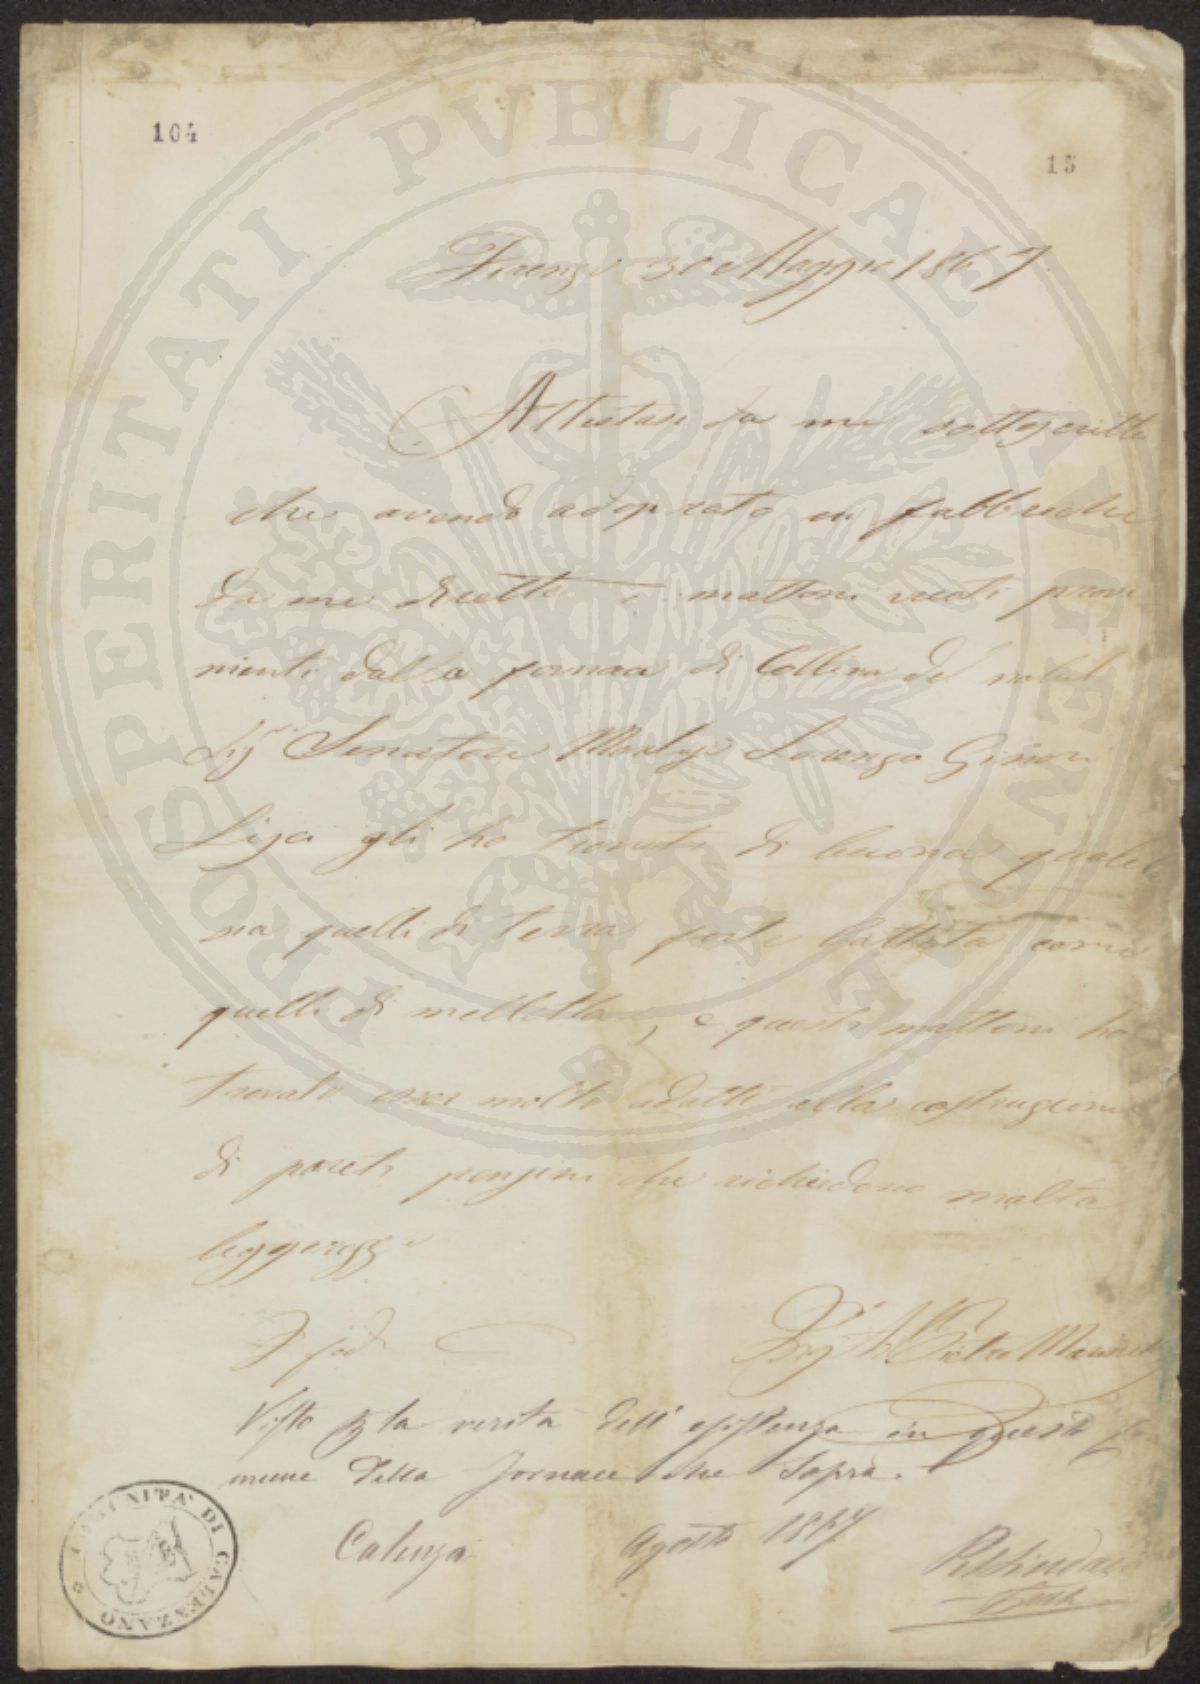 104
15
PROSPERITATI PVBLICAE AVGENDAE
Firenze 30 Maggio 1867
Attestasi da me sottoscritto
che avendo adoprato in fabbriche
da me dirette i mattoni vuoti prove
nienti dalla fornace di Collina del nobil
Sig.r Senatore March.e Lorenzo Ginori
Lisci gli ho trovati di buona qualità
sia quelli di terra forte battuta come
quelli di mellettta, e questi mattoni ho
trovati esser molto adatti alla costruzione
di pareti pensini che richiedono molta
leggerezza
I fede
Ing. Pietro
Visto per la verità dell' esistenza in questo Co
mune della fornace che sopra.
Calenza Agosto 1867
Il Sindaco
COMUNITA' DI CALENZANO